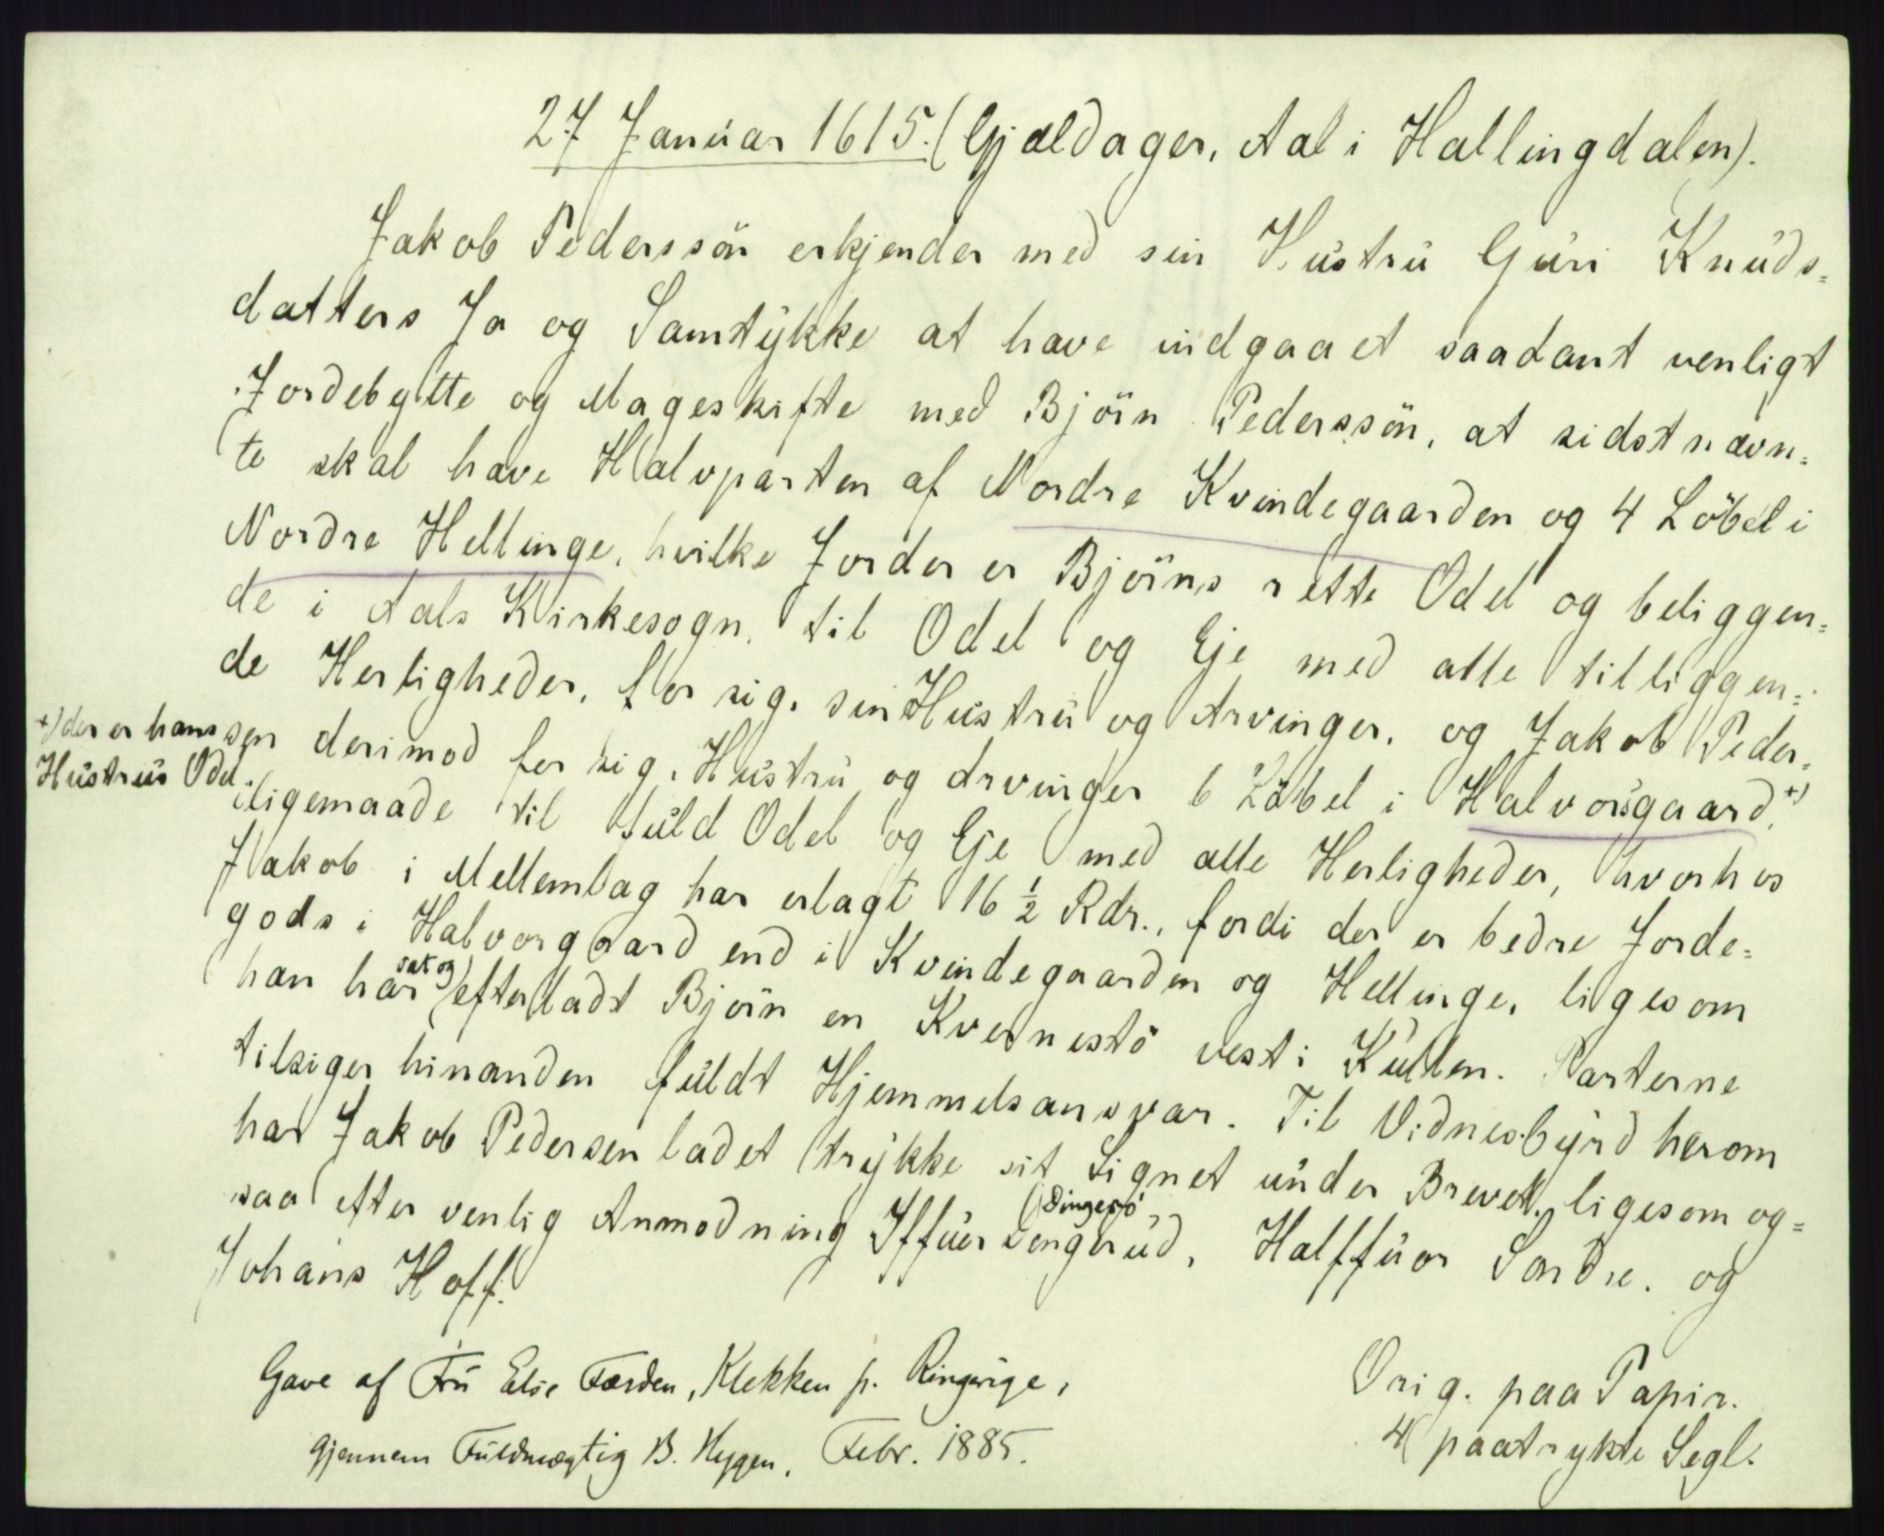 27 Januar 1615. (Gjældager, Aal i Hallingdalen).
Jakob Pederssön erkjender med sin Hustru Guri Knuds-
datters Ja og Samtykke at have indgaaet saadant venligt
Jordebytte og Mageskifte med Björn Pederssön, at sidstnævn-
te skal have Halvparten af Nordre Kvindegaarden og 4 Löbel i
Nordre Hellinge, hvilke Jorder er Björns rette Odel og beliggen-
de i Aals Kirkesogn, til Odel og Eje med alle tilliggen-
de Herligheder, for sig, sin Hustru og Arvinger, og Jakob Peder-
sen derimod for sig, Hustru og Arvinger 6 Löbel i Halvorsgaard, +)
+) der er hans
Hustrus Odel.
ligemaade til fuld Odel og Eje med alle Herligheder, hvorhos
Jakob i Mellemlag har erlagt 16 1/2 Rdr., fordi der er bedre Jorde-
gods i Halvorgaard end i Kvindegaarden og Hellinge, ligesom
han har sat og efterladt Björn en Kvernestö vest i Kullen. Parterne
tilsiger hinanden fuldt Hjemmelsansvar. Til Vidnesbyrd herom
har Jakob Pedersen ladet trykke sit Signet under Brevet, ligesom og-
saa efter venlig Anmodning Iffuer Dengerud, Halffuor Söndre, og
Johans Hoff.
Gave af Fru Else Færden, Klekken p. Ringerige,
gjennem Fuldmægtig B. Hygen, Febr. 1885.
Orig. paa Papir.
4 paatrykte Segl.